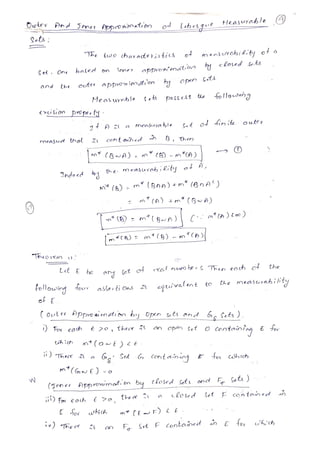 Outer And Inner Approximation of Lebesgue Measurable
Sets:
The two characteristics of measurability of a
Set: One based on inner approximation by closed sets
and the outer approximation by open sets
Measurable sets possess the following
excision property.
If A is a measurable set of finite outer
measure that is contained in B, then
m* (B∼A) = m* (B) - m*(A) → ①
Indeed by the measurability of A,
m* (B) = m* (B∩A) + m* (B∩Aᶜ)
= m* (A) + m* (B∼A)
m* (B) = m* (B∼A) (∵ m*(A)<∞)
m*(B) = m* (B) - m*(A)
Theorem 11:
Let E be any set of real numbers Then each of the
following four assertions is equivalent to the measurability
of E.
(Outer Approximation by open sets and Gδ Sets).
i) For each ε>0, there is an open set O containing E for
which m*(O∼E) < ε
ii) There is a Gδ Set G containing E for which
m*(G∼E) = 0
(Inner Approximation by closed sets and Fσ Sets)
iii) For each ε>0, there is a closed set F contained in
E for which m* (E∼F) < ε.
iv) There is an Fσ Set F contained in E for which